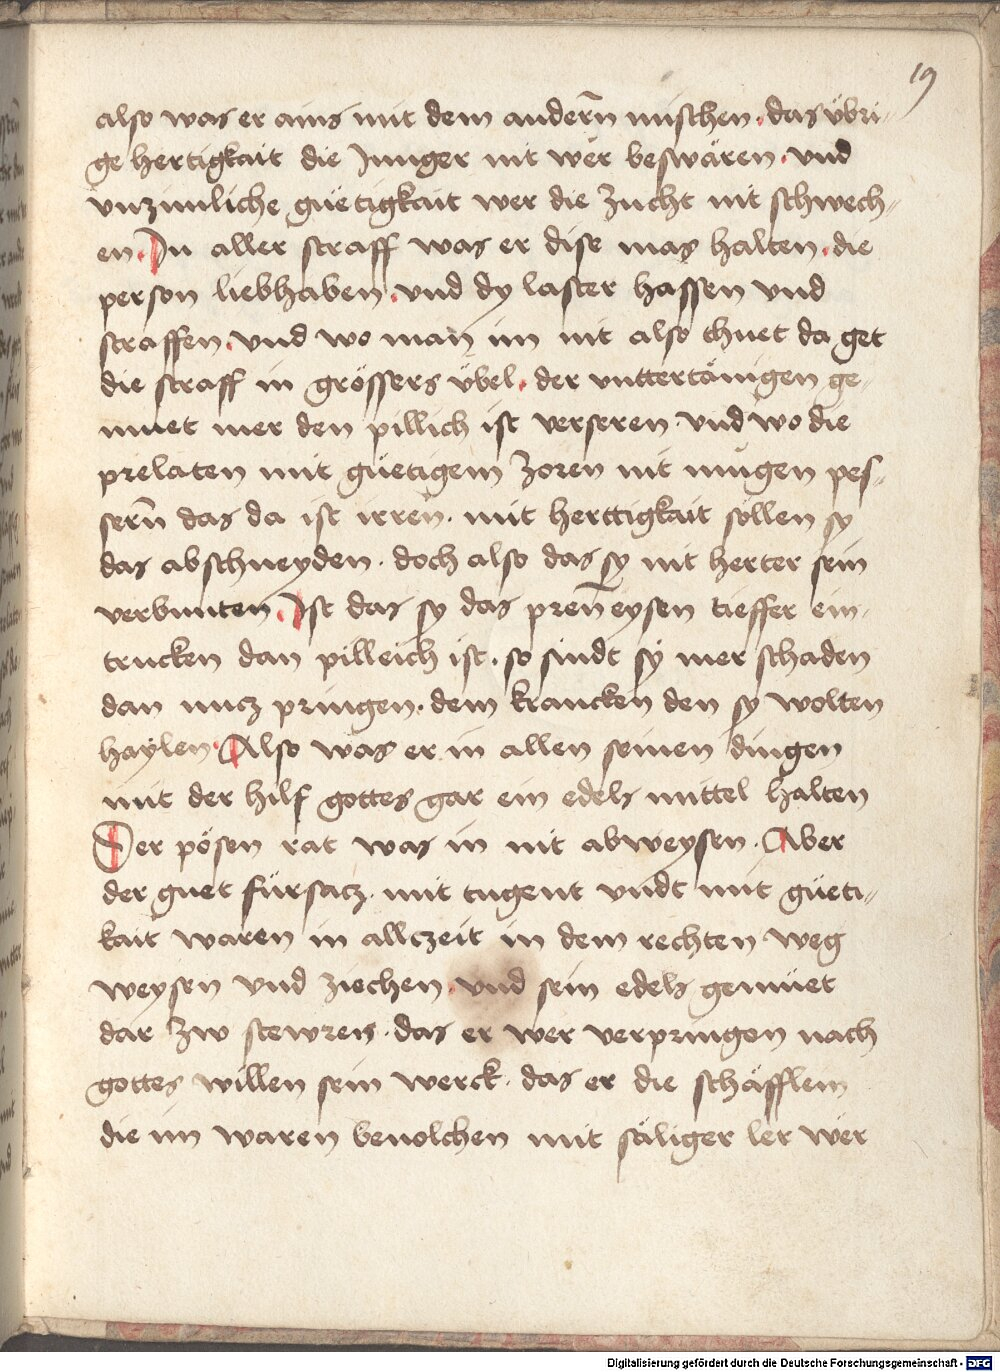 19
also was er ains mit dem andern̄ mischen · das übri-
ge hertigkait die Junger nit wer beswären · vnd
vnzimliche güetigkait wer die zucht nit schwech-
en · In aller straff was er dise mas halten · die
person liebhaben · vnd dy laster hassen vnd
straffen · vnd wo man im nit also thuet da get
die straff in grössers übel · der vnttertänigen ge-
muet mer den pillich ist verseren · vnd wo die
prelaten mit güetigem zoren nit mügen pes-
sern̄ das da ist irren · mit herttigkait söllen sy
das abschneyden · doch also das sy nit herter sein
verbunten · Ist das sy das pren̄eysen tieffer ein-
trucken dan pilleich ist · so sindt sÿ mer schaden
dan nucz pringen · dem krancken den sy wolten
haylen · Also was er in allen seinen dingen
mit der hilf gottes gar ein edels mittel halten
Der pösen rat was in nit abweysen · Aber
der guet fürsacz · mit tugent vndt mit güeti-
kait waren in allczeit in dem rechten weg
weysen vnd ziechen · vnd sein edels gemüet
dar zw stewren · das er wer verpringen nach
gottes willen sein werck · das er die schäfflein
die im waren beuolchen mit säliger ler wer
Digitalisierung gefördert durch die Deutsche Forschungsgemeinschaft - DFG